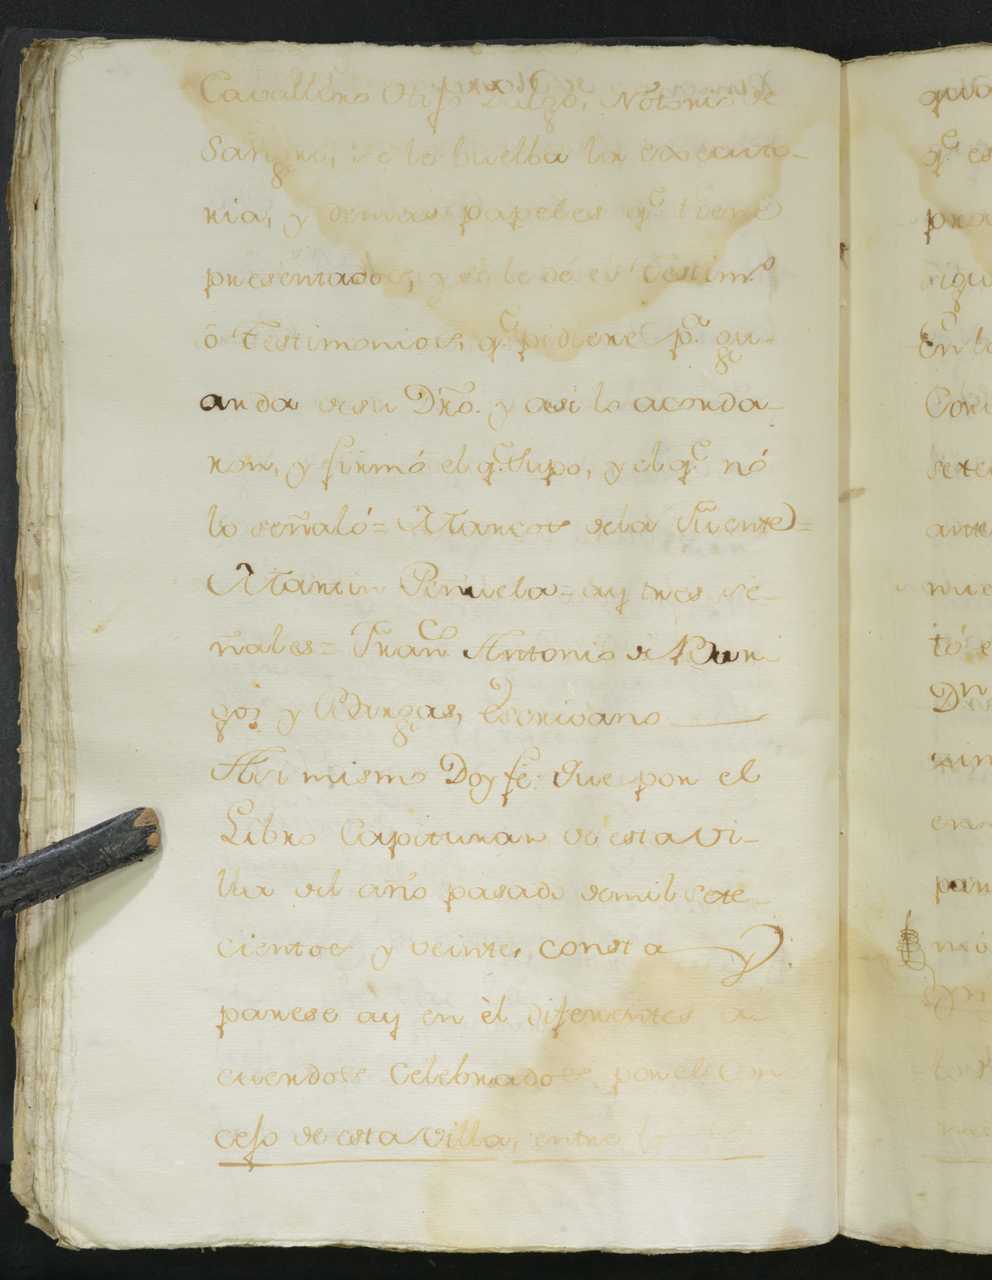 Cavallero Hijo dalgo, Notorio de
Sangre, se le buelba la executo-
ria, y demas papeles q.e tiene
presentados, y se le dé el testim.o
ó testimonios, q.e pidiere p.a gu-
arda desu Dro. y asi lo acorda-
ron, y firmó el q.e Supo, y el q.e nó
lo señaló = Marcos dela Fuente =
Martin Peñuela = ay tres se-
ñales = Fran.co Antonio de Bur-
gos y Vargas, Escrivano
Asi mismo Doy fe: Que por el
Libro Capitular de esta Vi-
lla del año pasado demil sete-
cientos y veinte, consta y
parese ay en èl diferentes a-
cuerdos Celebrados por el Con
cejo de esta Villa, entre lo
qua
q.e es
para
rigu
En la
Con
sete
ante
mie
tó e
D.n
en
par
mó